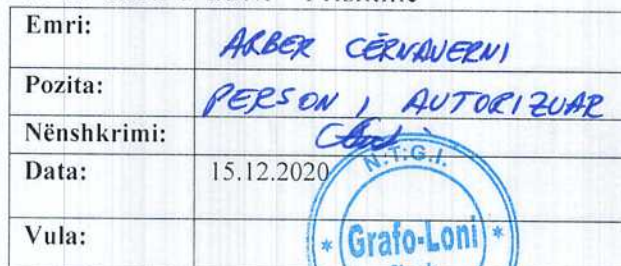 Emri:
ARBER CËRNAVERNI
Pozita:
PERSON I AUTORIZUAR
Nënshkrimi:
Data:
15.12.2020
N.T.G.I.
Vula:
* Grafo-Loni *